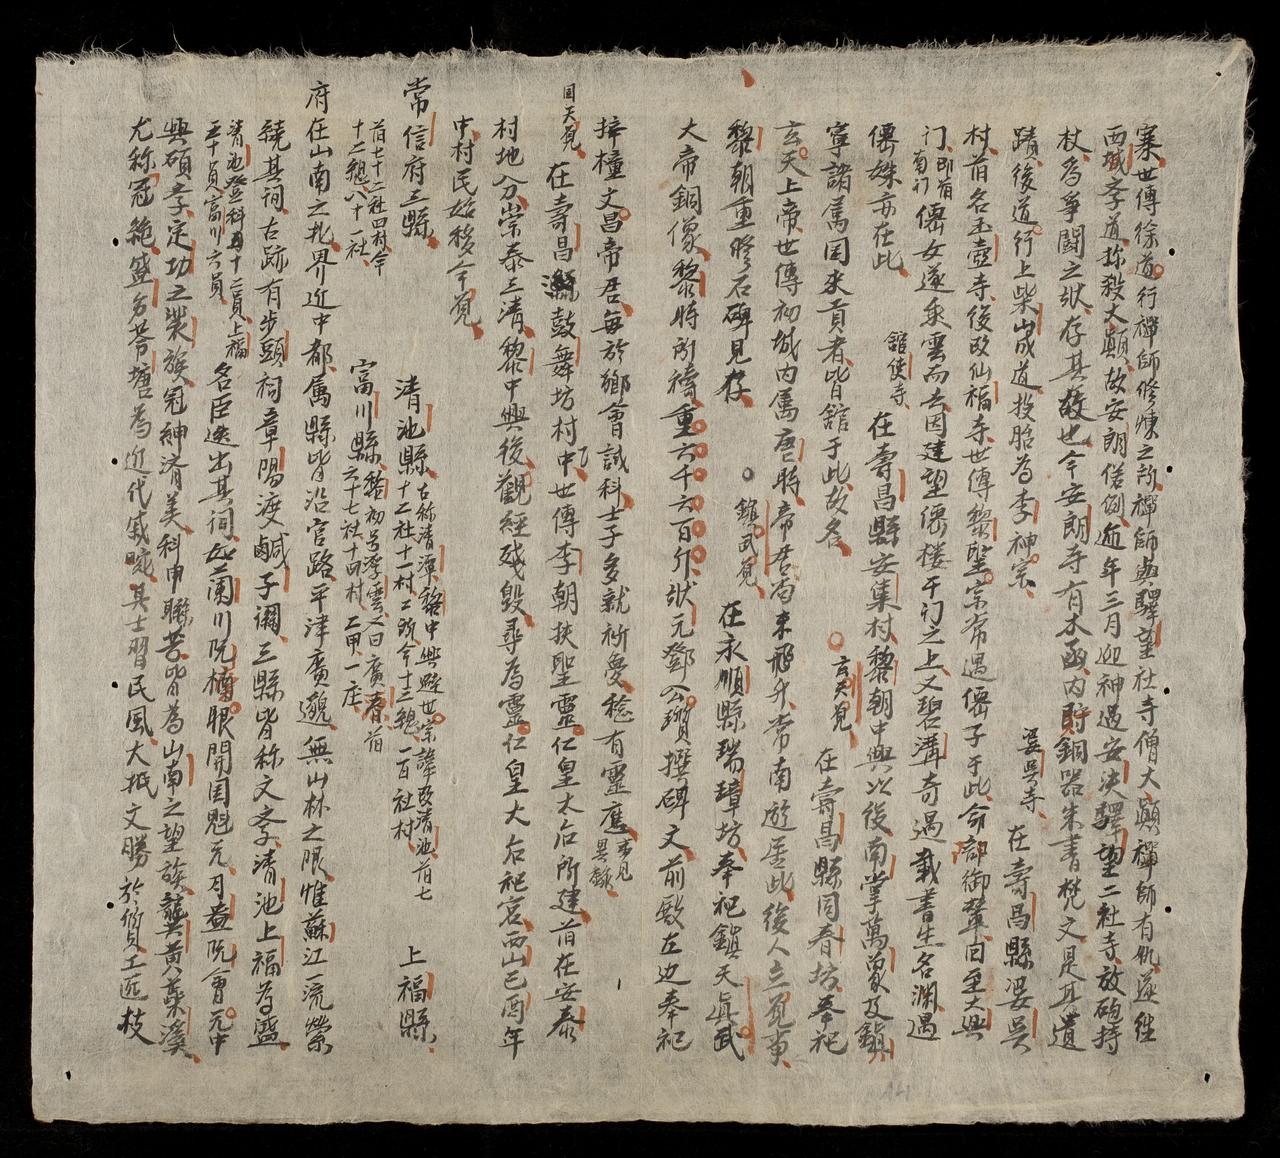 寨世傳徐道行禪師修煉之所禪師與驛望社寺僧大顚禪師有仇遂徃
西城孝道㧾殺大顚故安朗俗例逾年三月迎神過安决驛望二社寺放砲持
杖為爭闘之狀存其故也今安朗寺有木函内貯銅器朱書梵文是其遺
蹟後道行上柴山成道投胎為李神宗
婆吳寺
在壽昌縣婆吳
村前名玉壺寺後改仙福寺世傳黎聖宗常遇僊子于此命部御輦回至大興
门即前南门僊女遂乘雲而去因建望僊楼于门之上又碧溝奇遇載書生名渊遇
僊姝亦在此
舘使寺
在壽昌縣安集村黎朝中興以後南掌萬象及鎮
寧諸属国来貢者皆舘于此故名
玄天觀
在壽昌縣同春坊奉祀
玄天上帝世傳初城内属唐時帝君尚未飛升常南遊居此後人立觀事
黎朝重修石碑見存
鎮武觀
在永順縣瑞璋坊奉祀鎮天眞武
大帝銅像黎時所鑄重六千六百斤狀元鄧公瓚撰碑文前殿左边奉祀
梓橦文昌帝君每於鄉會試科士子多就祈夢稔有靈應事見異錄
囯天觀
在壽昌縣鼓舞坊村中世傳李朝扶聖靈仁皇太后所建前在安泰
村地分崇泰三清黎中興後觀經殘毀尋為靈仁皇太后祀宮西山己酉年
中村民始移今觀
常信府三縣
前七十二社四村今
十二總八十一社
清池縣
古称清潭黎中興避世宗諱改清池前七
十二社十一村二所今十三總一百社村
上福縣
富川縣
黎初号扶雲又曰廣春前
六十七社十四村二甲一庄
府在山南之北界近中都属縣皆沿官路平津廣邈無山林之限惟蘇江一流縈
繞其祠古跡有步頭祠章陽渡鹹子灁三縣皆称文孝清池上福為盛
清池登科四十二員上福
五十員富川六員
名臣迭出其祠如蘭川阮榜眼開国魁元月盎阮會元中
興碩孝定功之裴族冠紳濟美科甲聯芳皆為山南之望族龔黄蘂溪
尤称冠絶盛名芩塘為近代戚畹其士習民風大抵文勝於質工匠枝